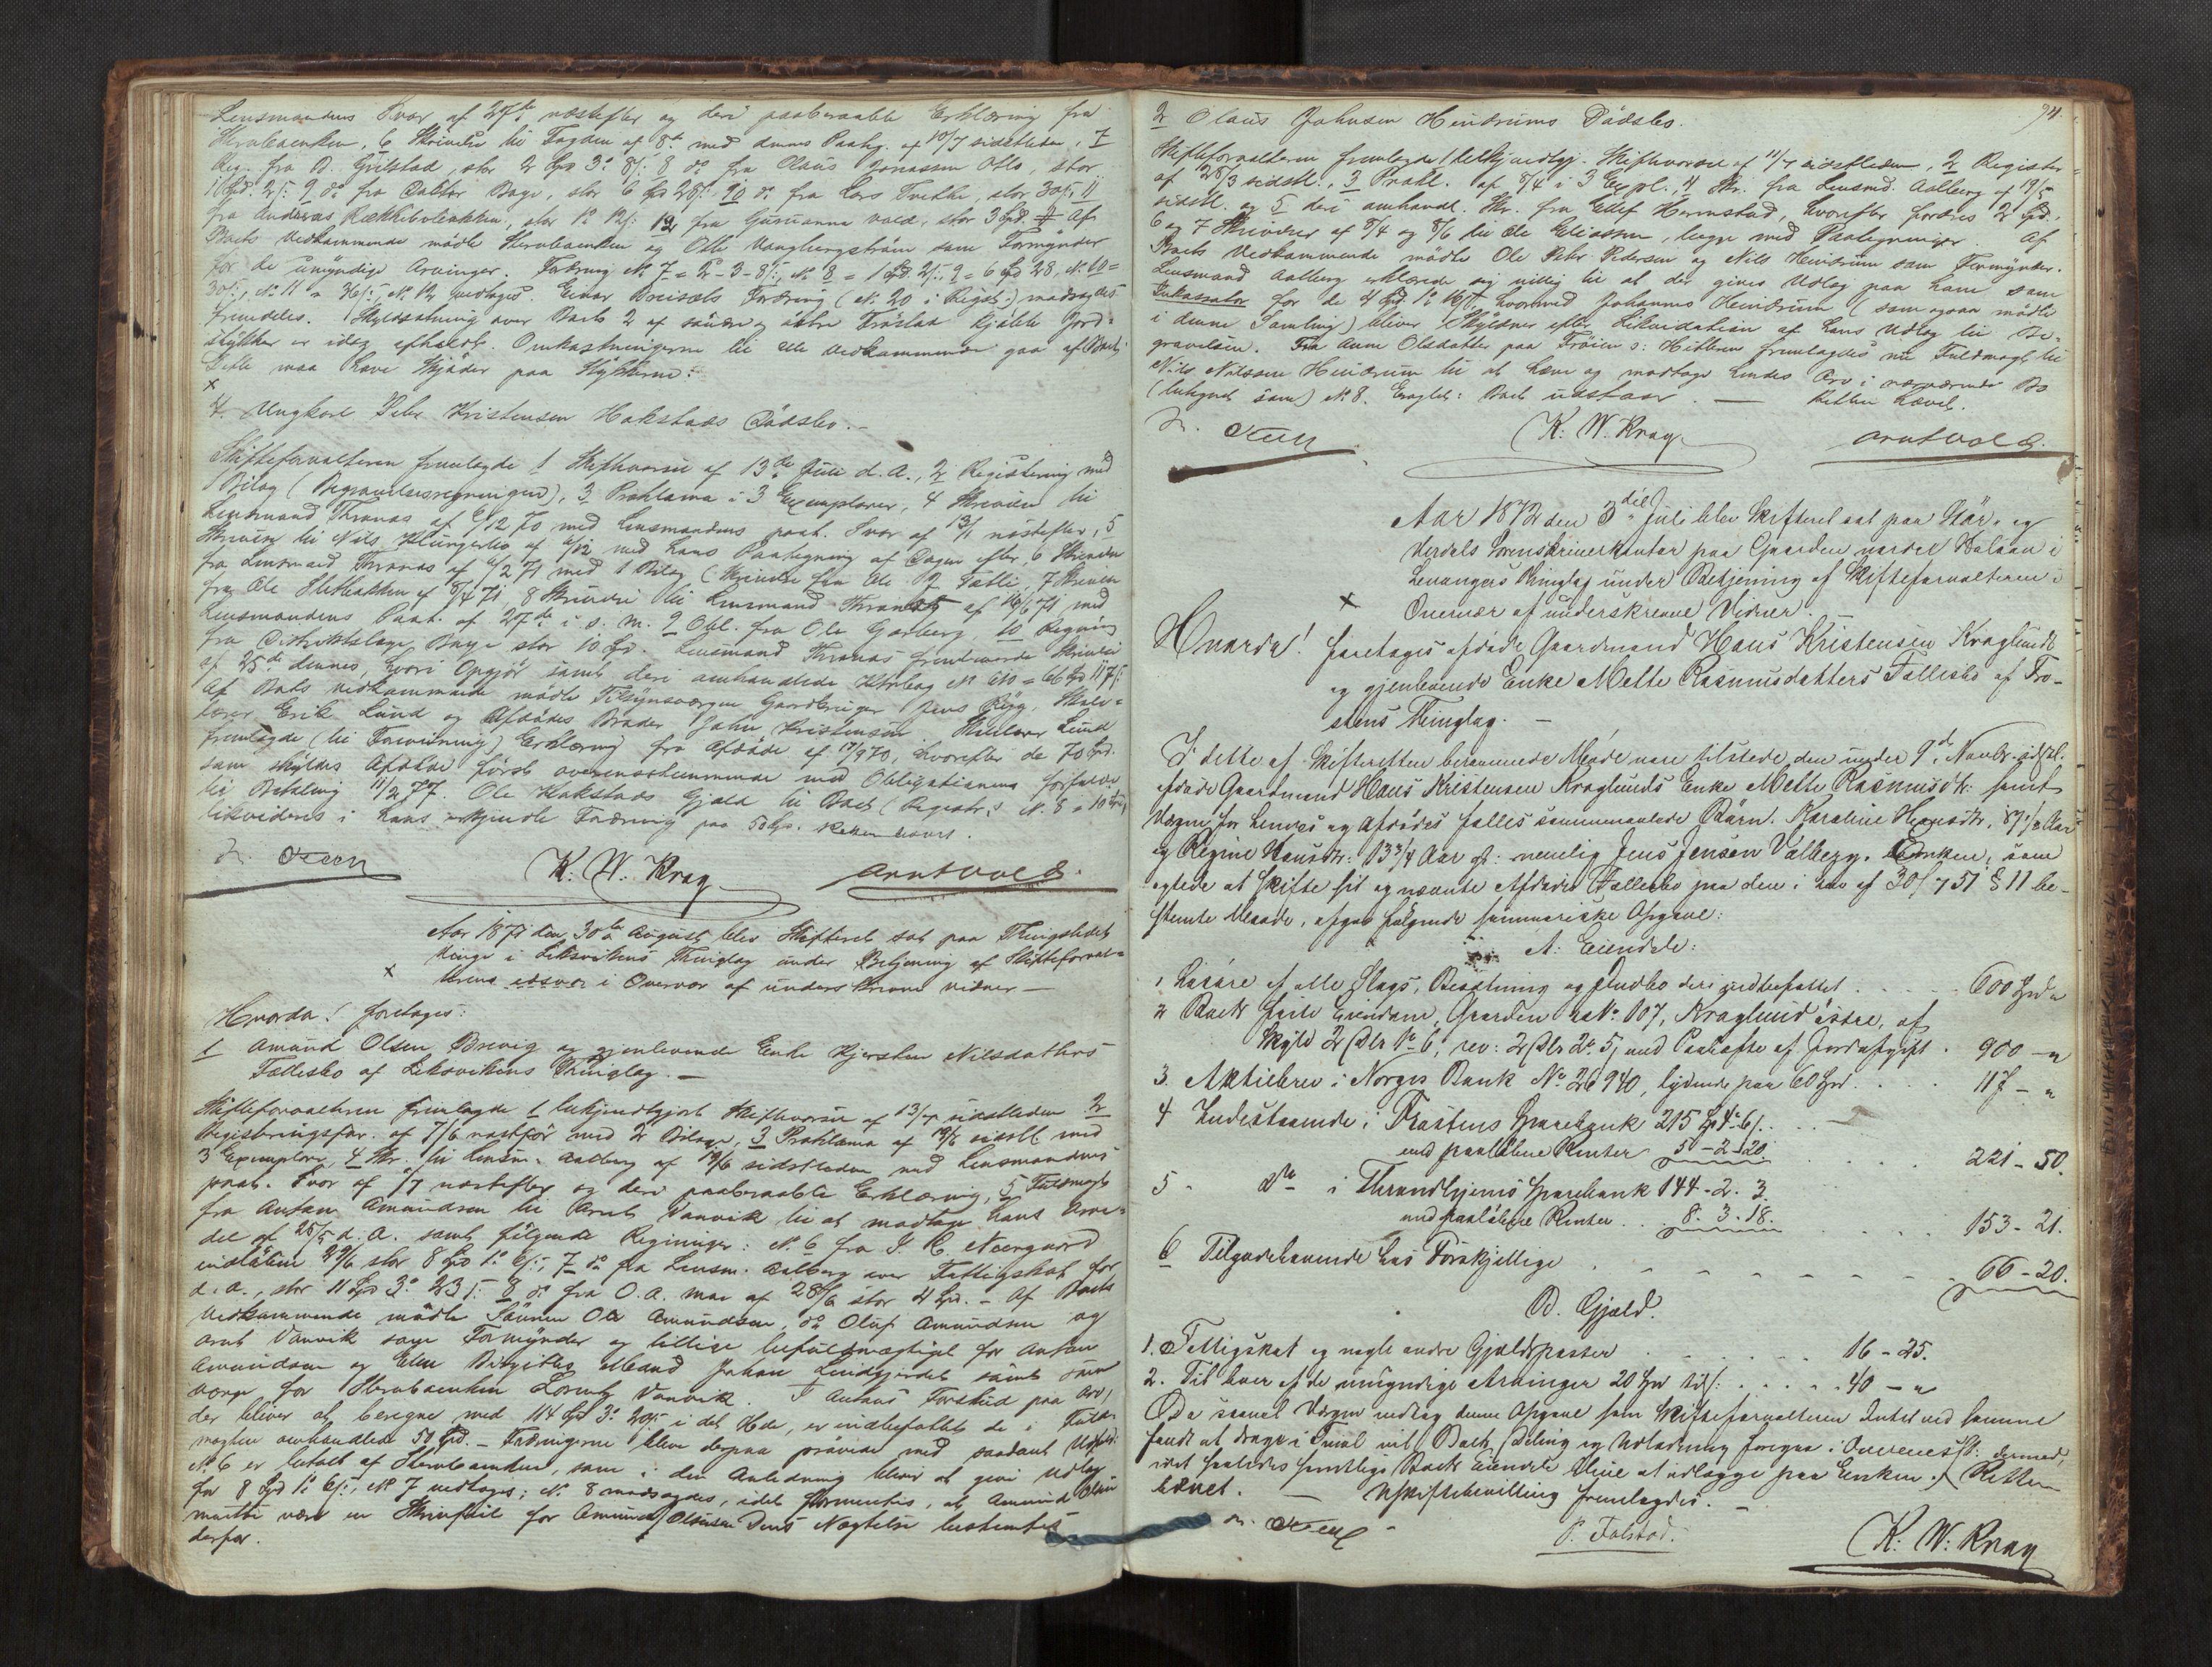 Lensmandens Svar af 27de næstefter og deri paaberaabte Erklæring fra
Stervboenken, 6 Skrivelse til Fogden af 8de med dennes Paategn. af 10/7 sidstleden, 7
Reg. fra D. Gjilstad, stor 2 Spd 3 8/: 8 do fra Olaus Jonassen Otto, stor
1 Spd. 2/: 9 do fra Doktor Bage, stor 6 Sp 28/: 10 do fra Lars Tvethe, stor 30/: 11
fra Andreas Rækkebolinkken, stor 1 12/: 12 fra Gurianna vold, stor 3 Spd. # Af
Boets Vedkommende mødte Stervboenken og Otto Vangbergstrøm som Formynder
for de umyndige Arvinger. Fordring No 7 = 2-3-8/:, No 8 = 1 Spd. 2/:, 9 = 6 Spd 28, No 10 =
30/:, No 11 = 36/:, No 12 vedtoges. Einar Breisets Fordring (No 20 i Regist:) modsagdes
fremdeles. Skyldsætning over Boets 2 af søndre og østre Frøslan kjøbte Jord-
stykker er idag afholdt. Omkostningerne til alle Vedkommende gaa af Boet.
Dette maa have Skjøder paa Stykkerne.
x
4. Ungkarl Peter Kristensen Hokstads Dødsbo.-
Skifteforvalteren fremlagde 1 Skiftevarsel af 13de Juli d.A., 2 Registrering med
1 Bilag (Begravelsesregningen), 3 Proklama i 3 Exemplarer, 4 Skrivelse til
Lensmand Thranas af 6/12 70 med Lensmandens paat. Svar af 13/1 næstefter, 5
Skrivelse til Nils Klungerbo af 6/12 med hans Paategning af Dagen efter, 6 Skrivelse
fra Lensmand Thranas af 4/2 71 med 1 Bilag (Skrivelse fra Ole P. Tætlie, 7 Skrivelse
fra Ole Slethakken af 8/4 71, 8 Skrivelse til Lensmand Thranas af 16/6 71 med
Lensmandens Paat. af 27de i s. M. 9 Obl. fra Ole Godberg, 10 Regning
fra Distriktslæge Bage stor 10 Spd. Lensmand Thranas fremlagde Skrivelse
af 25de dennes, hvori Opgjør samt deri omhandlede Udtrag No 610 = 66 Spd 117/:
Af Boets Vedkommende mødte Tilsynsværgen Gaardbruger Jens Rygg, Skole-
lærer Erik Lund og Afdødes Broder John Kristensen. Skolelærer Lund
fremlagde (til Forevisning) Erklæring fra Afdøde af 17/9 70, hvorefter de 70 Spd.
som skyldes Afdøde først overensstemmende med Obligationens forfalder
til Betaling 11/2 77. Ole Hokstads Gjæld til Boet (Registr.s No. 8 = 10 Spd)
likvideres i hans ankjendte Fordring paa 50 Sp. Retten hævet.
K. W. Krag Arnt Vold.
Aar 1871 den 30te August blev Skifteret sat paa Thingstedet
Vinge i Leksvikens Thinglag under Betjening af Skifteforval-
x terens edsvor. i Overvær af underskrevne Vidner-
Hvorda! foretoges:
1 Amund Olsen Brevig og gjenlevende Enke Kjersten Nilsdatters
Fællesbo af Leksvikens Thinglag.-
Skifteforvalteren fremlagde 1 lovkyndiggjort Skiftevarsel af 13/7 sidstleden 2
Registreringsfor. af 7/6 næstfør med 2 Bilage, 3 Proklama af 19/5 sidstl. med
3 Exemplarer, 4 Skr. til Lensm. Aalberg af 19/6 sidstleden med Lensmandens
paat. Svar af 1/7 næstefter og deri paaberaabte Erklæring, 5 Fuldmagt
fra Anton Amundsen til Arnt Vanvik til at modtage hans Arve-
del af 25/5 d.A. samt følgende Regninger: No. 6 fra J. C. Neergaard
indløben 29/6 stor 8 Spd 1 6/:, 7 do fra Lensm. Aalberg over Fattigskat for
d.A., stor 11 Spd 3 23/: 8 do fra O. A. Moe af 28/6 stor 4 Spd. - Af Boets
Vedkommende mødte Sønnen Ole Amundsen, do Oluf Amundsen og
Arnt Vanvik som Formynder og tillige befuldmægtiget for Anton
Amundsen og Elen Birgithes Mand Johan Lindgjerdet samt som
Værge for Stervboenken Lorents Vanvik. I Antons Forskud paa Arv,
der bliver at beregne med 114 Spd 3 20/: i det Hele, er indbefattet de i Fuld-
magten omhandlede 50 Spd. - Fordringerne bleve derpaa prøvede med saadant Udfald:
No. 6 er betalt af Stervboenken, som i den Anledning bliver at give Udlæg
for 8 Spd 1 6/:, No 7 vedtoges; No. 8 modsagdes, idet formentes, at Amund Olsen
maatte være en Skrivfeil for Amund Olsens Søns Nægtelse bestemtes
derfor.
74.
2 Olaus Johnsen Hindrums Dødsbo.
Skifteforvalteren fremlagde 1 bekjendtgj. Skiftevarsel af 11/7 sidstleden, 2 Register
af 28/3 sidstl., 3 Prokl. af 8/4 i 3 Expl., 4 Skr. fra Lensmd. Aalberg af 19/5
sidstl. og 5 deri omhandl. Skr. fra Edlef Hermstad, hvorefter fordres 2 Spd.,
6 og 7 Skrivelser af 8/4 og 8/6 til Ole Eliassen, begge med Paategninger. Af
Boets Vedkommende mødte Ole Peter Pedersen og Nils Hindrum som Formynder.
Lensmand Aalberg erklærede sig villig til at der gives Udlæg paa ham som
Inkassator for de 4 Spd 1 16/:, hvormed Johannes Hindrum (som ogsaa mødte
i denne Samling) bliver Skyldner efter Likvidation af hans Udlæg til Be-
gravelsen. Fra Anne Olsdatter paa Frøien o: Hitteren fremlagdes nu Fuldmagt til
Nils Nilssen Hindrum til at hæve og modtage hendes Arv i nærværende Bo
(betegnet som) No 8. Eragtet: Boet udstaar. — Retten hævet.
K. W. Krag Arnt Vold.
Aar 1872 den 3die Juli blev Skifteret sat paa Stør- og
Verdals Sorenskriverkontor paa Gaarden nordre Halsan i
Levangers Thinglag under Betjening af Skifteforvalteren i
x Overvær af underskrevne Vidner.-
Hvorda! foretoges afdøde Gaardmand Hans Kristensen Kraglunds
og gjenlevende Enke Mette Rasmusdatters Fællesbo af Fro-
stens Thinglag.-
I dette af Skifteretten berammede Møde vare tilstede den under 9de Novbr. sidstl.
afdøde Gaardmand Hans Kristensen Kraglunds Enke Mette Rasmusdtr: samt
Værgen for hendes og Afdødes fælles sammenavlede Børn. Karoline Hansdtr, 8 1/2 Aar
og Regine Hansdtr: 13 3/4 Aar gl: nemlig Jens Jensen Valberg. Enken, som
agtede at skifte sit og nævnte Afdødes Fællesbo paa den i Lov af 30/7 51 § 11 be-
stemte Maade, afgav følgende summariske Opgave:
A: Eiendele:
1. Løsøre af alle Slags, Besætning og Indbo deri indbefattet . . . . 600 Spd "
2 Boets faste Eiendom, Gaarden No. 107, Kraglund østre, af
Skyld 2 Dlr 1 6, rev: 2 Dlr 2. 5, med Paahæfte af Jordafgift . 900 - "
3. Aktiebrev i Norges Bank No. 26940, lydende paa 60 Spd . . . 117 - "
4 Indestaaende i Frostens Sparebank 215 Sp 4 6/. . . .
med paaløbne Renter 5-2-20. . . . . 221 - 50.
5 - do i Throndhjems Sparebank 144-2. 3.
med paaløbne Renter . . 8. 3. 18. . . . 153 - 21.
6 Tilgodehavende hos Forskjellige . - - - - - - 66 - 20.
B. Gjæld.
1. Fattigskat og nogle andre Gjældsposter . . . . . 16 - 25.
2. Til hver af de umyndige Arvinger 20 Spd tils: . . . . 40 - "
Da saavel Værgen vedtog denne Opgave som Skifteforvalteren Intet ved samme
fandt at drage i Tvivl vil Boets Deling og Udlodning foregaa i Overensst: dermed,
idet saaledes samtlige Boets Eiendele blive at udlægge paa Enken. Retten
hævet. — Uskiftebevilling fremlagdes.-
P. Falstad. K: W: Krag